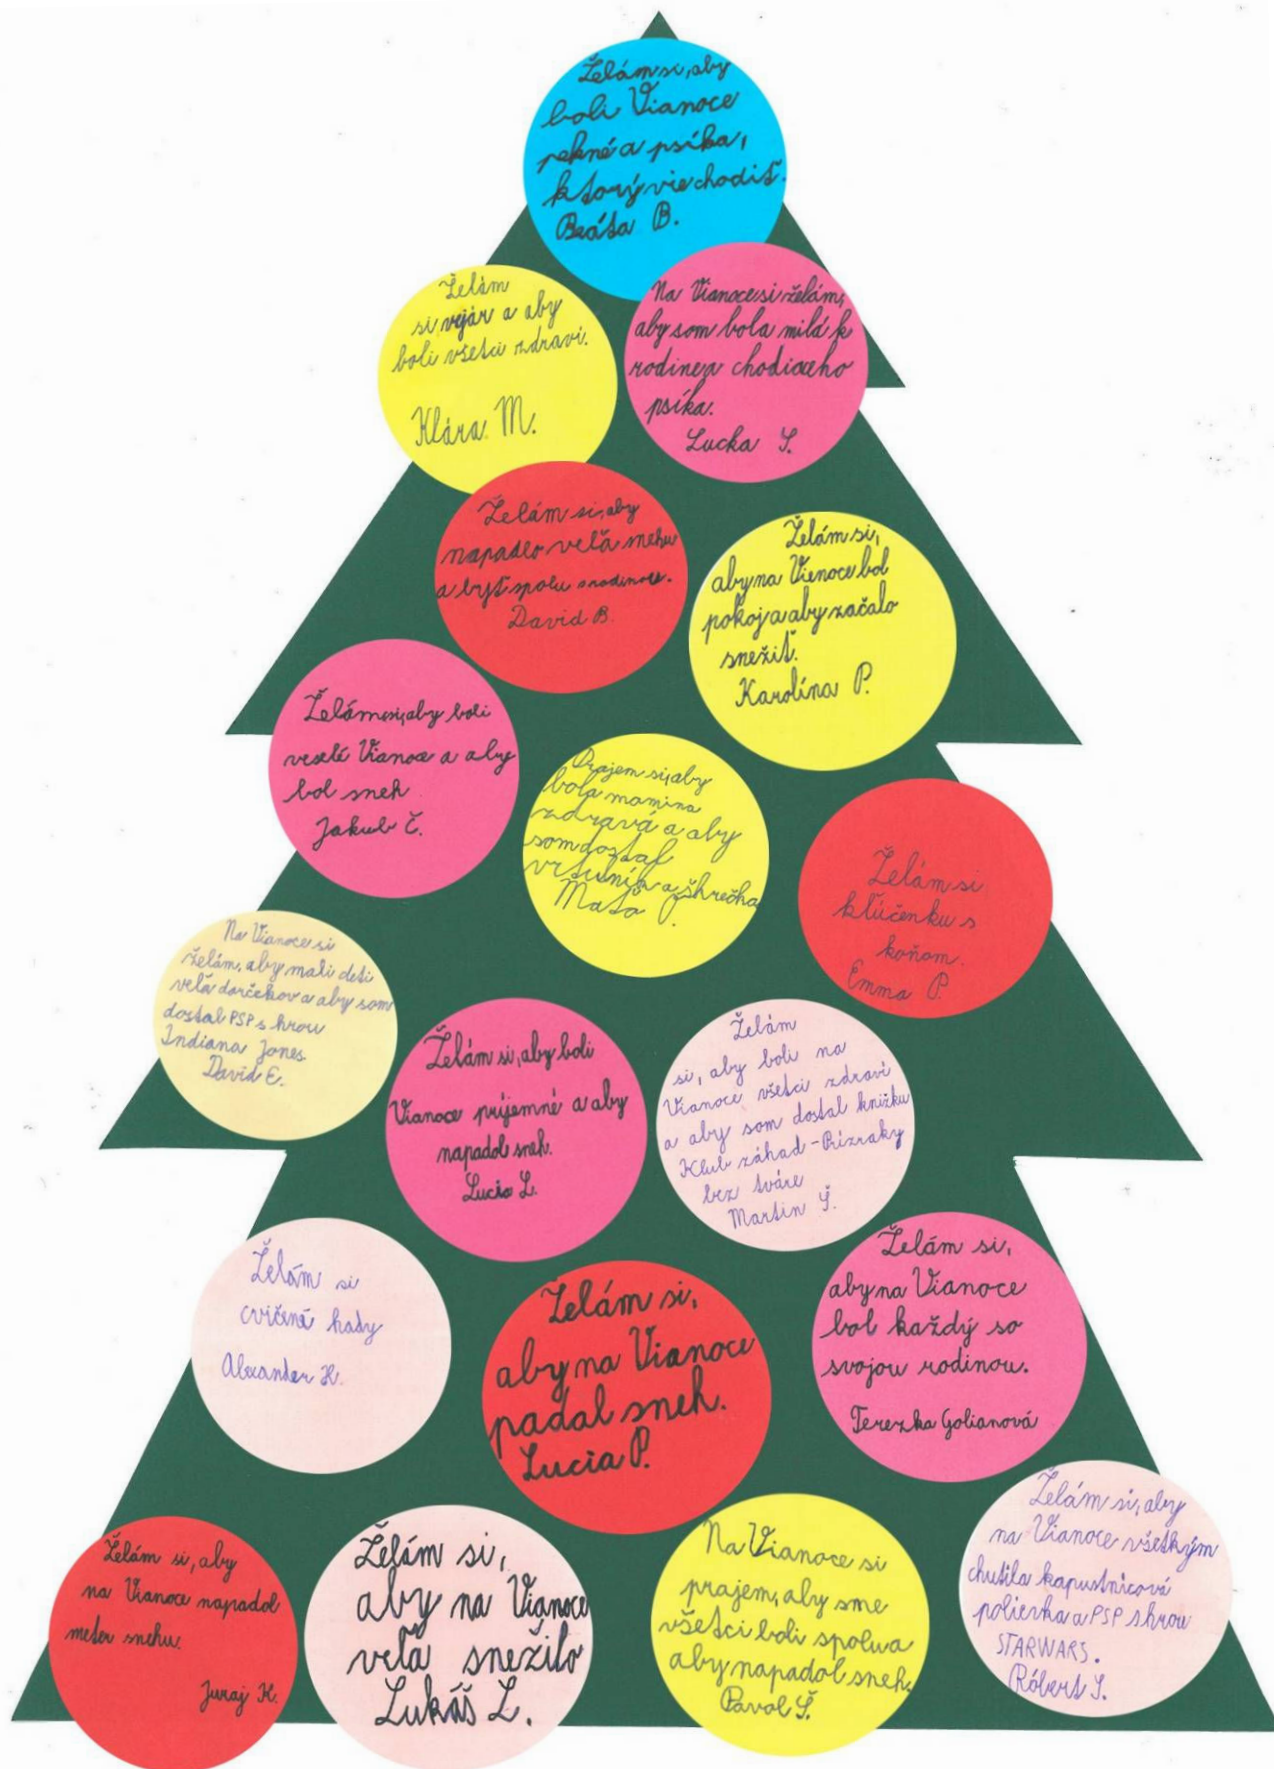 Želám si, aby
boli Vianoce
pekné a psíka,
ktorý vie chodiť.
Beáta B.
Želám
si vejár a aby
boli všetci zdraví.
Klára M.
Na Vianoce si želám,
aby som bola milá k
rodine a chodiaceho
psíka.
Lucka S.
Želám si, aby
napadlo veľa snehu
a byť spolu s rodinou.
David B.
Želám si,
aby na Vienoce bol
pokoj a aby začalo
snežiť.
Karolína P.
Želám si, aby boli
veselé Vianoce a aby
bol sneh
Jakub Č.
Prajem si, aby
bola mamina
zdravá a aby
som dostal
vrtulník a škrečka
Maťo P.
Želám si
kľúčenku s
koňom.
Emma P.
Na Vianoce si
želám, aby mali deti
veľa darčekov a aby som
dostal PSP s hrou
Indiana Jones.
David E.
Želám si, aby boli
Vianoce príjemné a aby
napadol sneh.
Lucia L.
Želám
si, aby boli na
Vianoce všetci zdraví
a aby som dostal knižku
Klub záhad - Prízraky
bez tváre
Martin Š.
Želám si
cvičené hady
Alexander H.
Želám si,
aby na Vianoce
padal sneh.
Lucia P.
Želám si,
aby na Vianoce
bol každý so
svojou rodinou.
Terezka Golianová
Želám si, aby
na Vianoce napadol
meter snehu.
Juraj K.
Želám si,
aby na Vianoce
veľa snežilo
Lukáš L.
Na Vianoce si
prajem, aby sme
všetci boli spolu a
aby napadol sneh.
Pavol Š.
Želám si, aby
na Vianoce všetkým
chutila kapustnicová
polievka a PSP s hrou
STARWARS.
Róbert S.